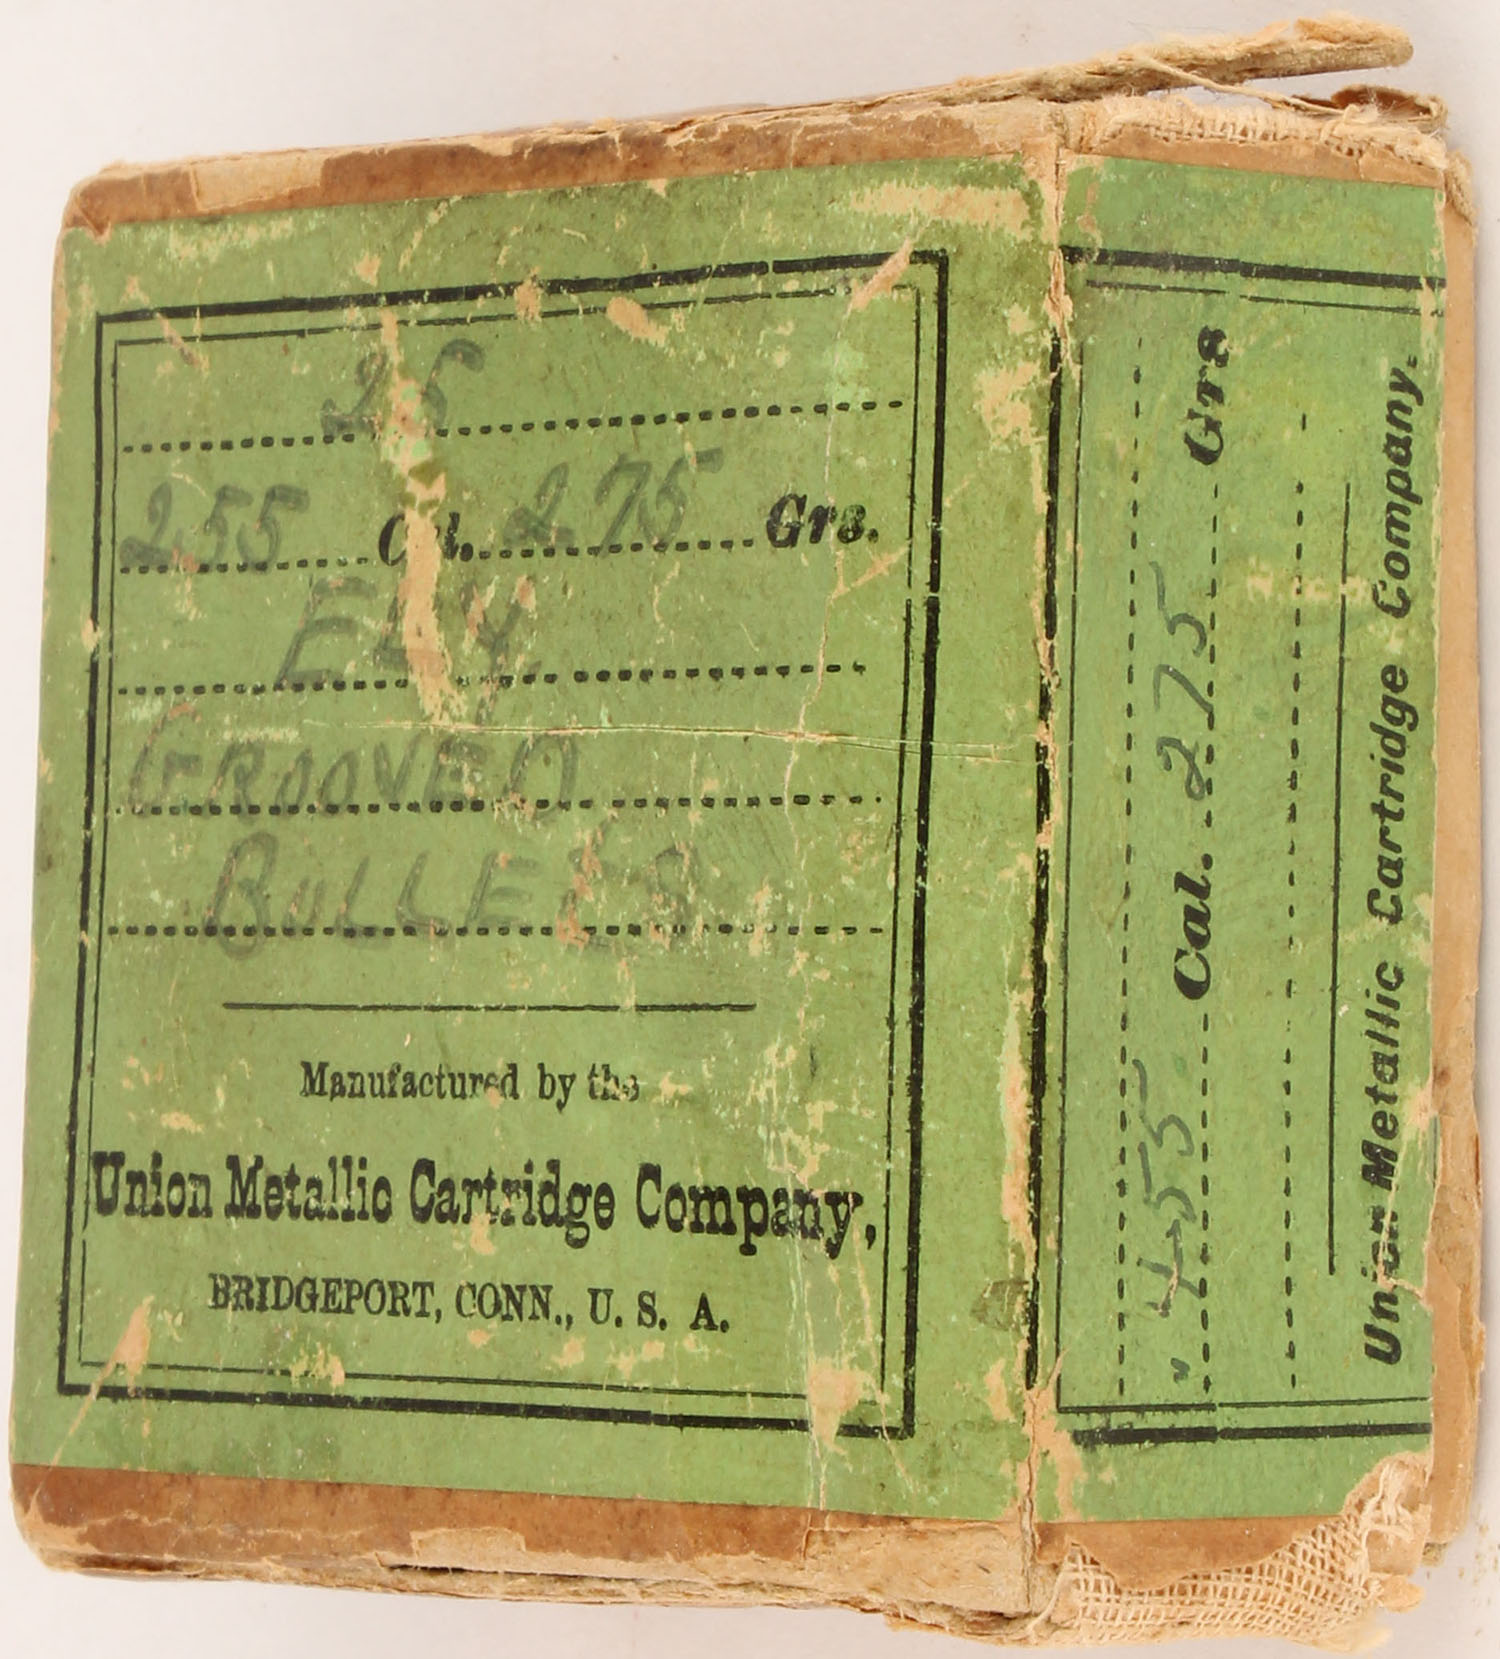 25
255 Cal. 275 Grs.
ELY
GROOVED
BULLETS
Manufactured by the
Union Metallic Cartridge Company,
BRIDGEPORT, CONN., U. S. A.
" 455 Cal. 275 Grs
Union Metallic Cartridge Company.